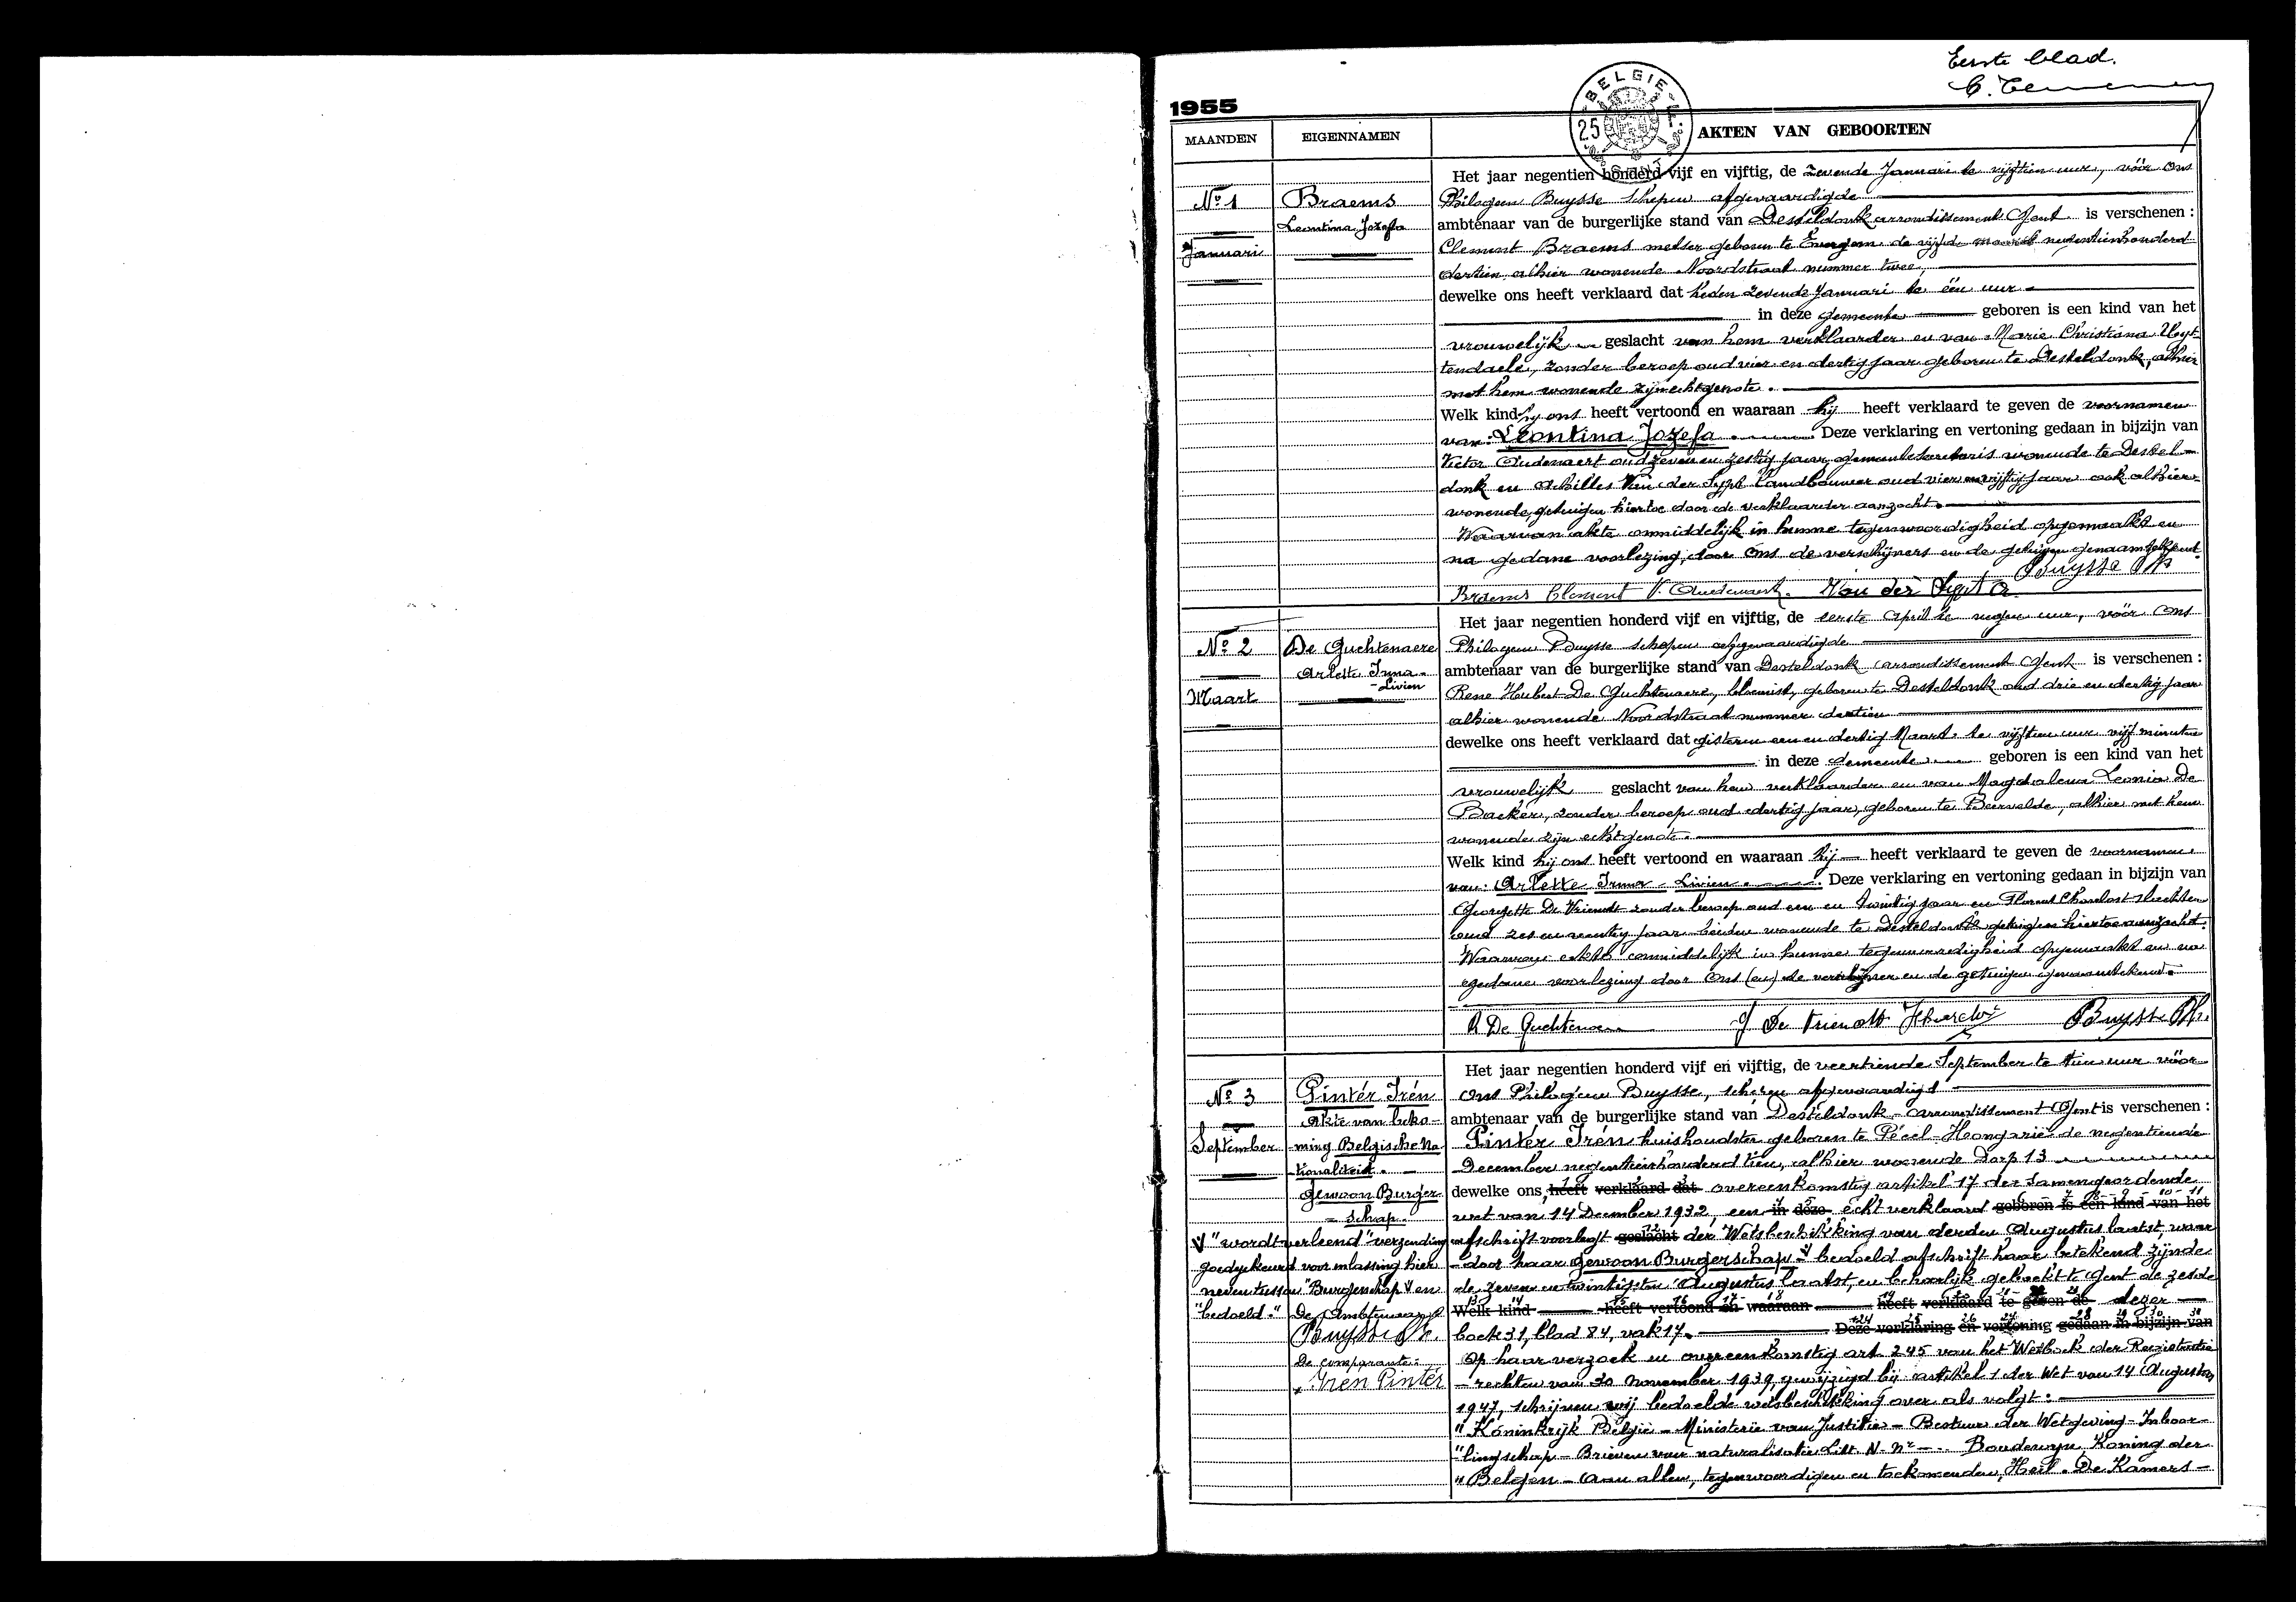 Eerste blad.
1955
BELGIE
25 F.
MAANDEN
EIGENNAMEN
AKTEN VAN GEBOORTEN
Nº 1
Januari
Braems
Leontina Jozefa
Het jaar negentien honderd vijf en vijftig, de zevende Januari te vijftien uur, vóór Ons
Philogeen Buysse Schepen afgevaardigde
ambtenaar van de burgerlijke stand van Desteldonk arrondissement Gent is verschenen :
Clement Braems metser geboren te Evergem de vijfde maart negentienhonderd
dertien, alhier wonende Noordstraat nummer twee,
dewelke ons heeft verklaard dat heden zevende Januari te één uur
in deze gemeente geboren is een kind van het
vrouwelijk geslacht van hem verklaarder en van Marie Christiana Uyt-
tendaele, zonder beroep oud vier en dertig jaar geboren te Desteldonk, alhier
met hem wonende zijn echtgenote.
Welk kind hij ons heeft vertoond en waaraan hij heeft verklaard te geven de voornamen
van: Leontina Jozefa. Deze verklaring en vertoning gedaan in bijzijn van
Victor Oudenaert oud zeven en zestig jaar, gemeentesecretaris wonende te Destel-
donk en Achilles Van der Sypt landbouwer oud vier en vijftig jaar ook alhier
wonende, getuigen hiertoe door de verklaarder aanzocht.
Waarvan akte onmiddelijk in hunne tegenwoordigheid opgemaakt en
na gedane voorlezing, door Ons de verschijners en de getuigen genaamtekend.
Buysse Ph
Braems Clement V. Oudenaert. Van der Sypt A.
Nº 2
Maart
De Guchtenaere
Arlette Irma-
-Livien
Het jaar negentien honderd vijf en vijftig, de eerste April te negen uur, vóór Ons
Philogeen Buysse schepen afgevaardigde
ambtenaar van de burgerlijke stand van Desteldonk arrondissement Gent is verschenen :
Rene Hubert De Guchtenaere, bloemist, geboren te Desteldonk oud drie en dertig jaar
alhier wonende Noordstraat nummer dertien
dewelke ons heeft verklaard dat gisteren een en dertig Maart te vijftien uur vijf minuten
in deze gemeente geboren is een kind van het
vrouwelijk geslacht van hem verklaarder en van Magdalena Leonia De
Backer, zonder beroep oud dertig jaar, geboren te Beervelde, alhier met hem
wonende zijn echtgenote.
Welk kind hij ons heeft vertoond en waaraan hij heeft verklaard te geven de voornamen
van: Arlette Irma - Livien. Deze verklaring en vertoning gedaan in bijzijn van
Georgette De Vriendt zonder beroep oud een en twintig jaar en Florent
oud zes en jaar beiden wonende te Desteldonk getuigen hiertoe aanzocht.
Waarvan akte onmiddelijk in hunne tegenwoordigheid opgemaakt en na
gedane voorlezing door Ons (en) de verschijner en de getuigen genaamtekend.
R De Guchtenaere G De Vriendt Buysse Ph.
Nº 3
September
Pintér Irén
Akte van beko-
ming Belgische Na
tionaliteit.
Gewoon Burger-
- schap.
Het jaar negentien honderd vijf en vijftig, de veertiende September te tien uur vóór
Ons Philogeen Buysse, schepen afgevaardigd
ambtenaar van de burgerlijke stand van Desteldonk - arrondissement Gent is verschenen :
Pintér Irén huishoudster geboren te Pécel - Hongarië de negentiende
December negentienhonderd tien, alhier wonende Dorp 13
dewelke ons, heeft verklaard dat overeenkomstig artikel 17 der samengeordende
wet van 14 December 1932, een in deze echt verklaard geboren is een kind van het
afschrift voorlegt geslacht der Wetsbeschikking van derden Augustus laatst, waar
- door haar gewoon Burgerschap V bedoeld afschrift haar betekend zijnde
de zeven en twintigsten Augustus laatst, en behoorlijk geboekt te Gent de zesde
Welk kind heeft vertoond en waaraan heeft verklaard te geven de dezer
boek 31, blad 84, vak 17. Deze verklaring en vertoning gedaan in bijzijn van
Op haar verzoek en overeenkomstig art 245 van het Wetboek der Registratie
- rechten van 30 November 1939, gewijzigd bij artikel 1 der Wet van 14 Augustus
1947, schrijven wij bedoelde wetsbeschikking over als volgt :
" Koninkrijk België - Ministerie van Justitie - Bestuur der Wetgeving - Inboor-
"lingschap - Brieven van naturalisatie Litt. N. nr - Boudewyn, Koning der
" Belgen - Aan allen, tegenwoordigen en toekomenden, Heil. De Kamers -
V "wordt verleend" verzending
goedgekeurd voor inlassing hier
neven tussen "Burgerschap V en
"bedoeld." De Ambtenaar
Buysse Ph.
De comparante:
Irén Pintér